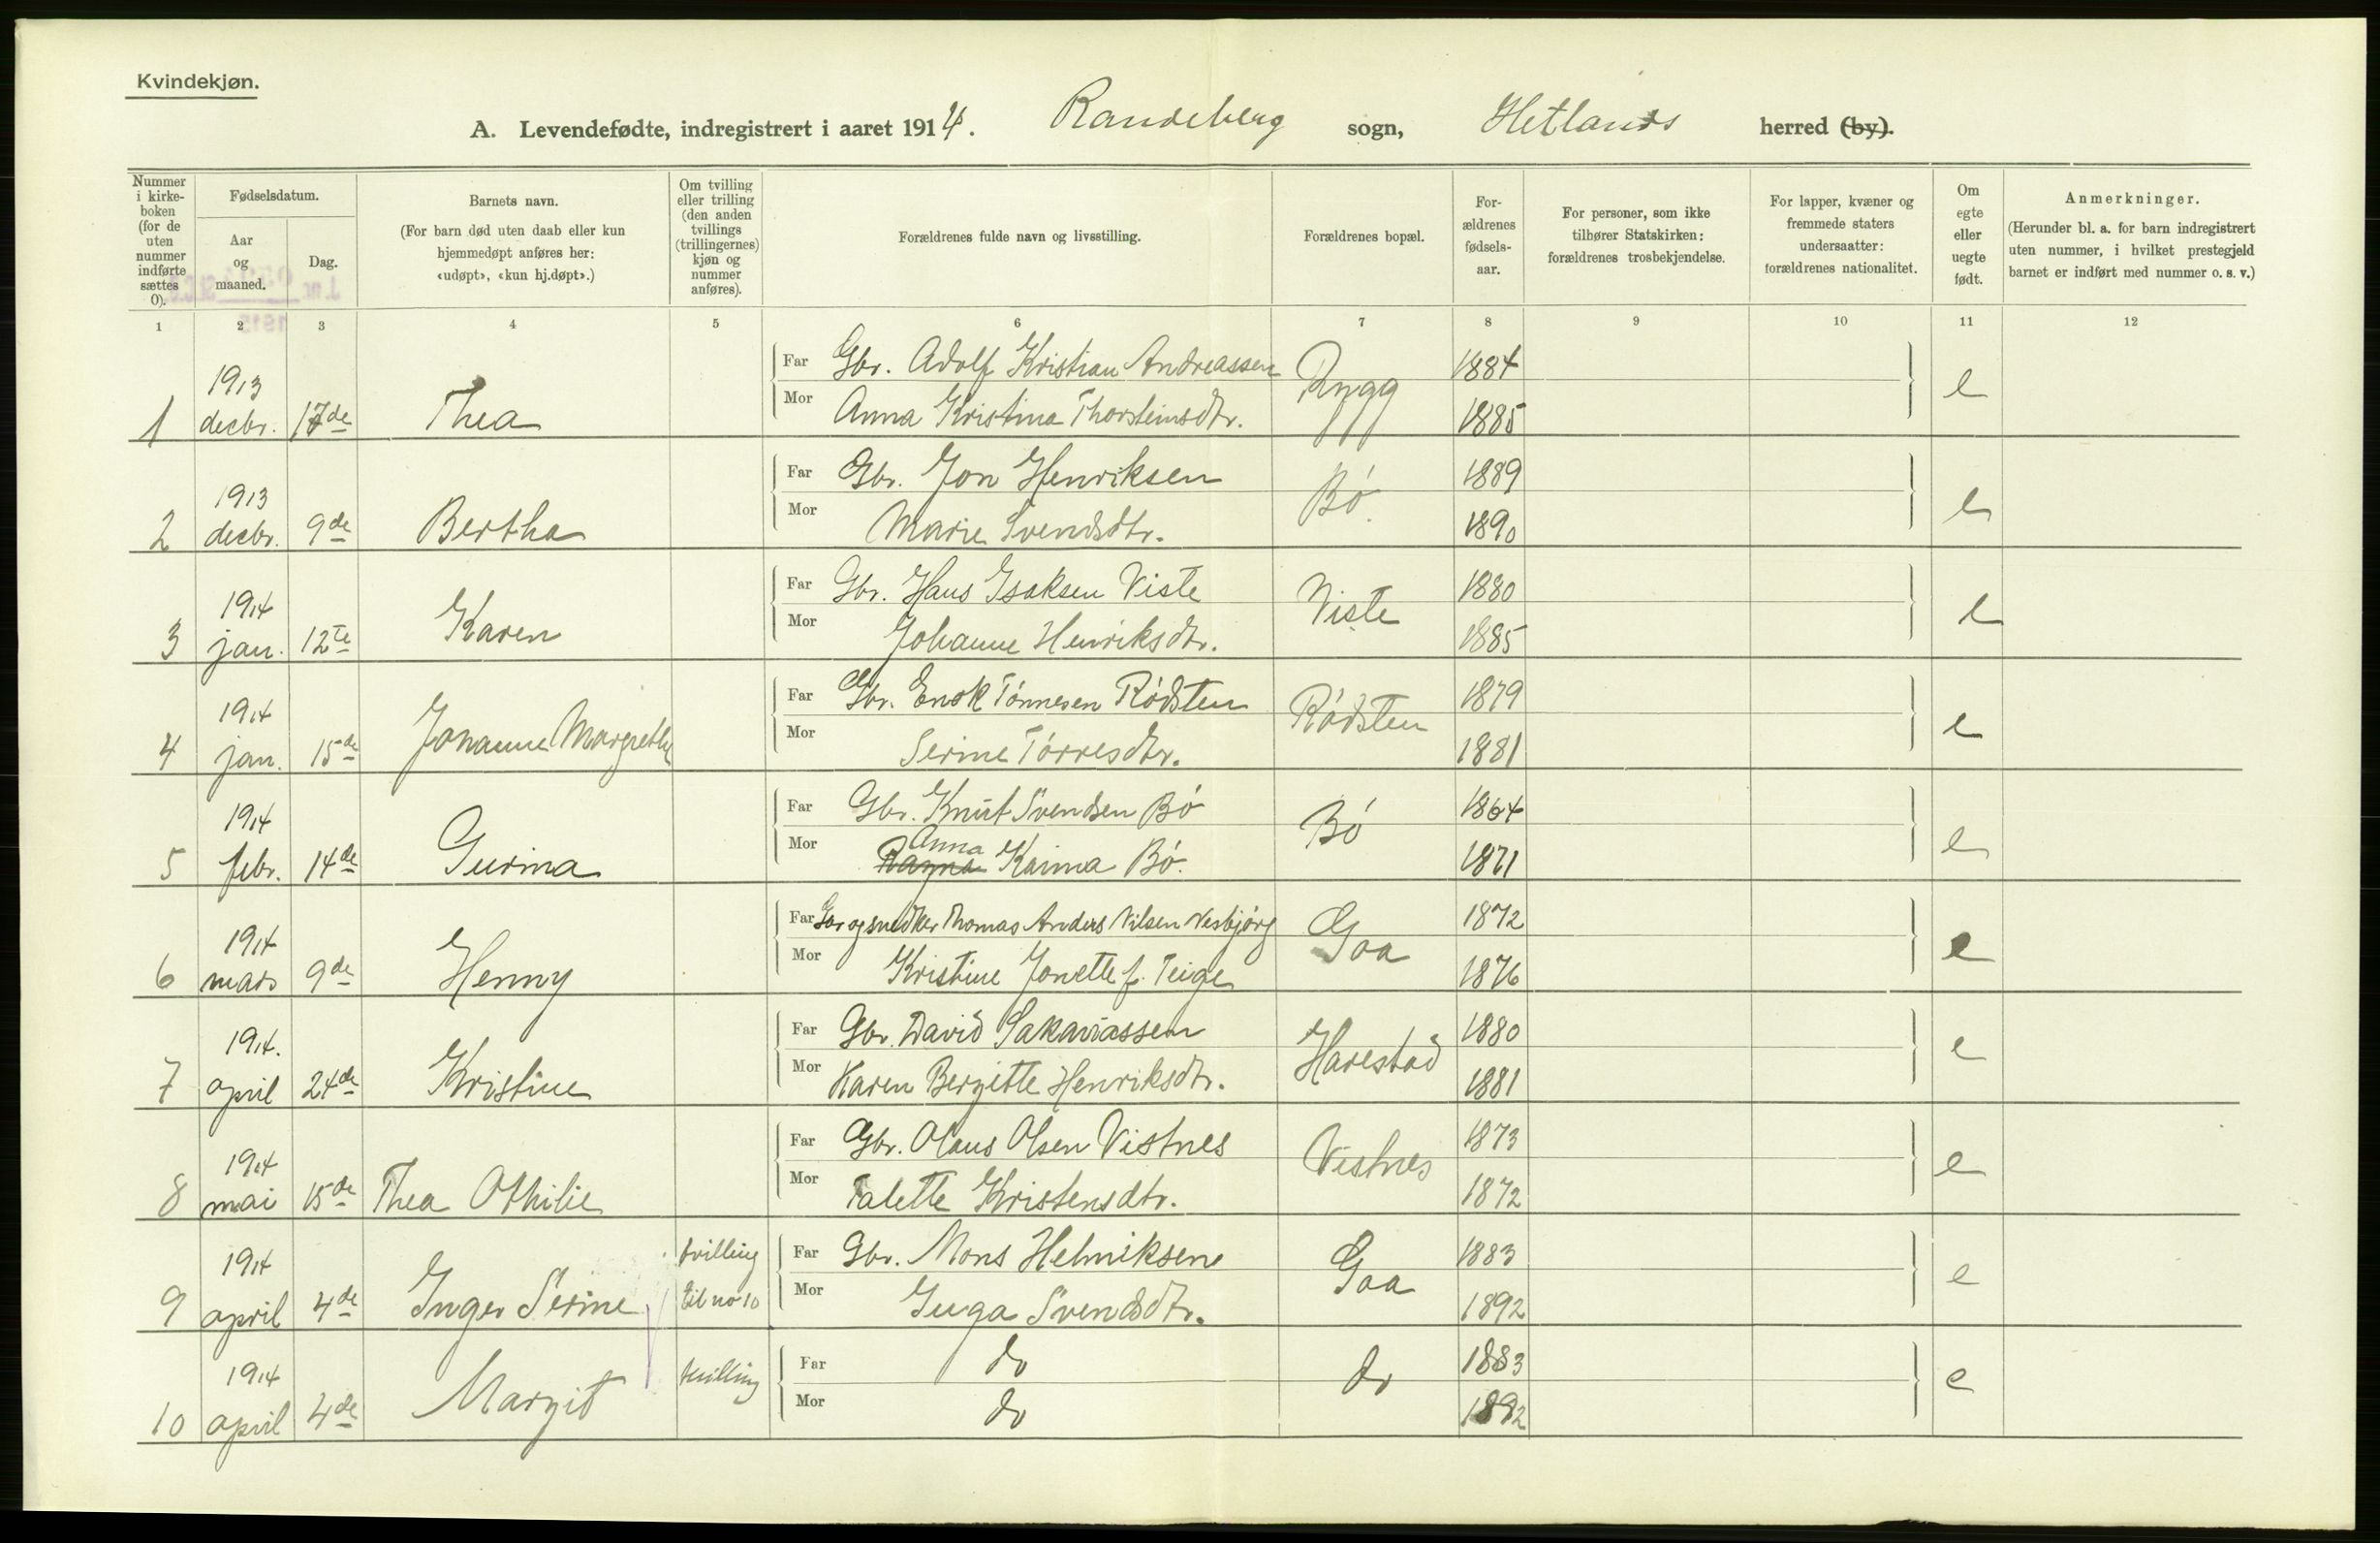 Kvindekjøn.
A. Levendefødte, indregistrert i aaret 1914. Randeberg sogn, Hetlands herred (by).
Nummer i kirkeboken (for de uten nummer indførte sættes 0).
Fødselsdatum.
Aar og maaned.
Dag.
Barnets navn.
(For barn død uten daab eller kun hjemmedøpt anføres her: «udøpt», «kun hj.døpt».)
Om tvilling eller trilling (den anden tvillings (trillingernes) kjøn og nummer anføres).
Forældrenes fulde navn og livsstilling.
Forældrenes bopæl.
Forældrenes fødselsaar.
For personer, som ikke tilhører Statskirken: forældrenes trosbekjendelse.
For lapper, kvæner og fremmede staters undersaatter: forældrenes nationalitet.
Om egte eller uegte født.
Anmerkninger.
(Herunder bl. a. for barn indregistrert uten nummer, i hvilket prestegjeld barnet er indført med nummer o. s. v.)
1 2 3 4 5 6 7 8 9 10 11 12
1913 Far Gbr. Adolf Kristian Andreassen Rygg 1884 e
1 decbr. 17de Thea Mor Anna Kristina Thorsteinsdtr. 1885
1913 Far Gbr. Jon Henriksen Bö. 1889 e
2 decbr. 9de Bertha Mor Marie Svendsdtr. 1890
1914 Far Gbr. Hans Isaksen Viste Viste 1880 e
3 jan. 12te Karen Mor Johanne Henriksdtr. 1885
1914 Far Gbr. Enok Tönnesen Rödsten Rödsten 1879 e
4 jan. 15de Johanne Margrethe Mor Serine Törresdtr. 1881
1914 Far Gbr. Knut Svendsen Bö Bö 1864 e
5 febr. 14de Gurina Mor Ragna Anna Karina Bö. 1871
1914 Far Gbr og snedker Thomas Anders Nilsen Vesbjörg Goa 1872 e
6 mars 9de Henny Mor Kristine Jonette f. Teige 1876
1914. Far Gbr. David Sakariassen Harestad 1880 e
7 april 24de Kristine Mor Karen Bergitte Henriksdtr. 1881
1914 Far Gbr. Olaus Olsen Vistnes Vistnes 1873 e
8 mai 15de Thea Othilie Mor Talette Kristensdtr. 1872
1914 tvilling Far Gbr. Mons Helmiksen Goa 1883 e
9 april 4de Inger Serine til no 10 Mor Inga Svendsdtr. 1892
1914 tvilling Far do do 1883 e
10 april 4de Margit Mor do 1892